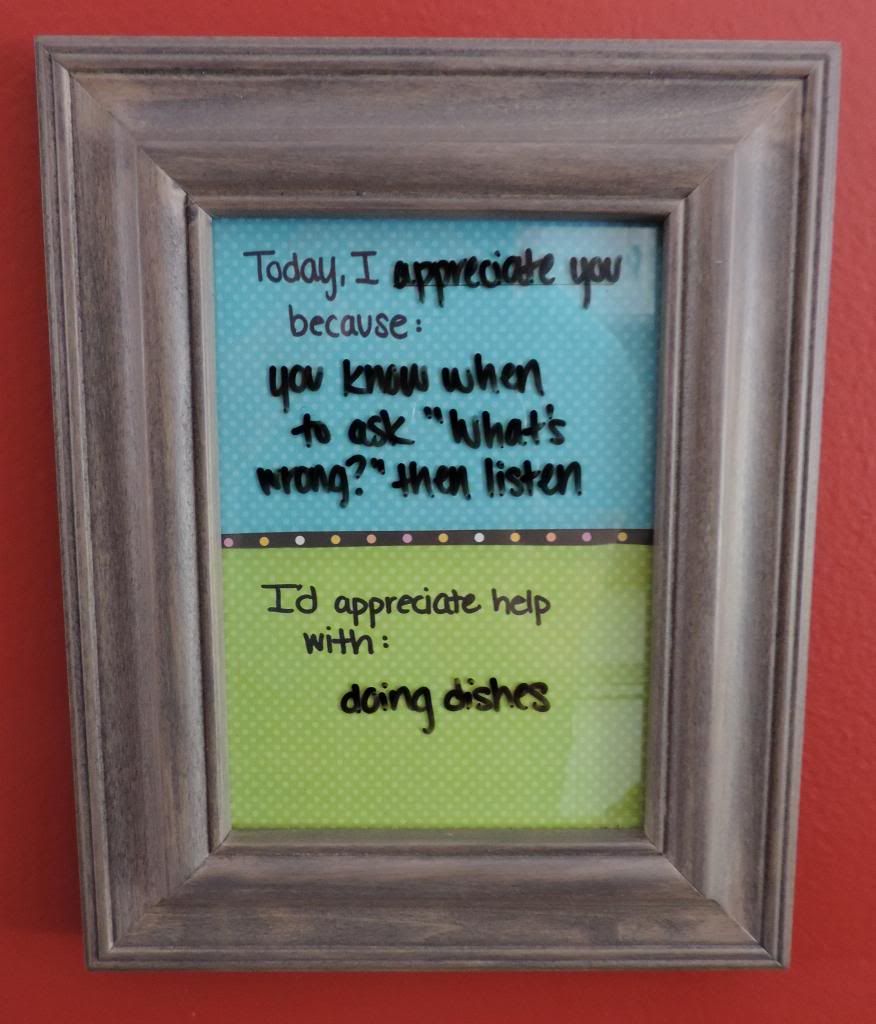 Today, I appreciate you
because:
you know when
to ask "What's
wrong?" then listen
I'd appreciate help
with:
doing dishes